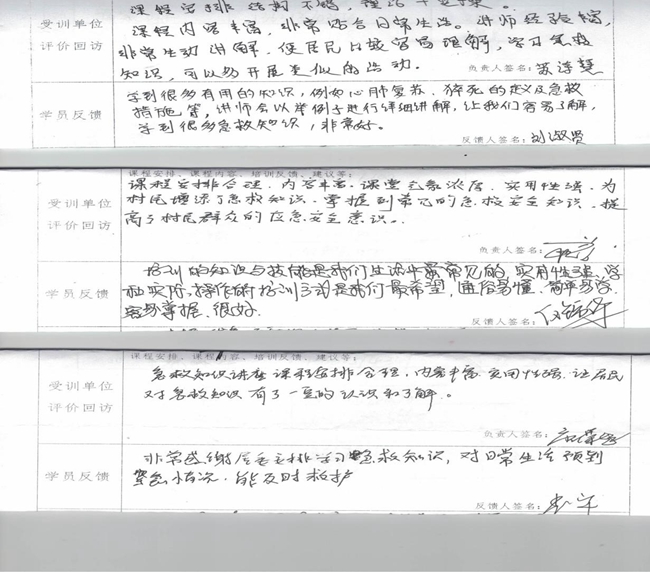 课程安排
受训单位 课程内容丰富，非常适合日常生活。讲师经验
评价回访 非常生动讲解，使居民比较容易理解，学习急救
知识，可以多开展类似的活动。
负责人签名：
学到很多有用的知识，例如心肺复苏、猝死的定义及急救
学员反馈 措施等，讲师会以举例子进行详细讲解，让我们容易了解，
学到很多急救知识，非常好。
反馈人签名：刘淑贤
课程安排、课程内容、培训反馈、建议等：
课程安排合理，内容丰富，课堂气氛浓厚，实用性强，为
村民增添了急救知识，掌握到常见的急救安全知识，提
高了村民群众的应急安全意识。
负责人签名：
培训的知识与技能是我们生活中最常见的，实用性强，学
学员反馈 实际操作 培训方式是我们最希望，通俗易懂，简单易学，
容易掌握，很好．
反馈人签名：
课程安排、课程内容、培训反馈、建议等：
受训单位 急救知识讲座课程安排合理，内容丰富，实用性强，让居民
评价回访 对急救知识有了一定的认识和了解。
负责人签名：
非常感谢居委安排学习急救知识，对日常生活预到
学员反馈 紧急情况，能及时救护
反馈人签名：